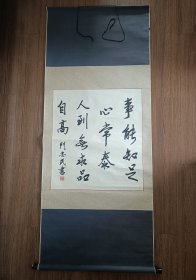 事能知足
心常泰
人到無求品
自高